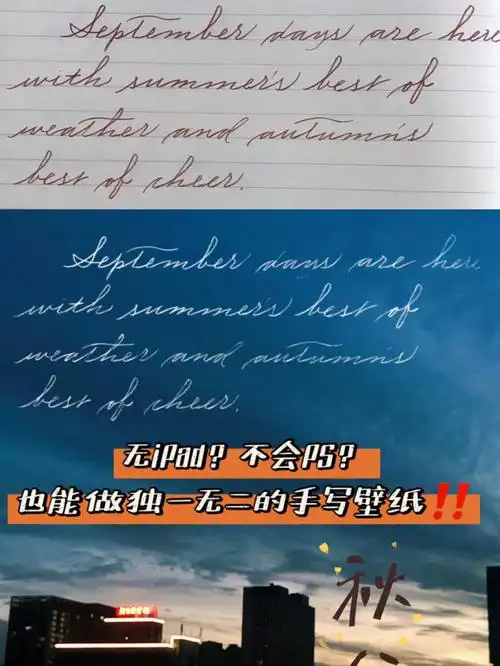 September days are here
with summer's best of
weather and autumn's
best of cheer.
September days are here
with summer's best of
weather and autumn's
best of cheer.
无iPad？不会PS？
也能做独一无二的手写壁纸‼️
秋